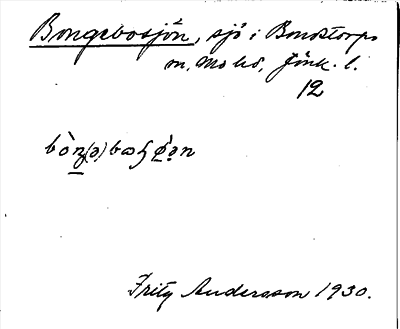 Bongebosjön, sjö i Bondstorps
sn, Mo hd, Jönk. l.
12
Fritz Andersson 1930.